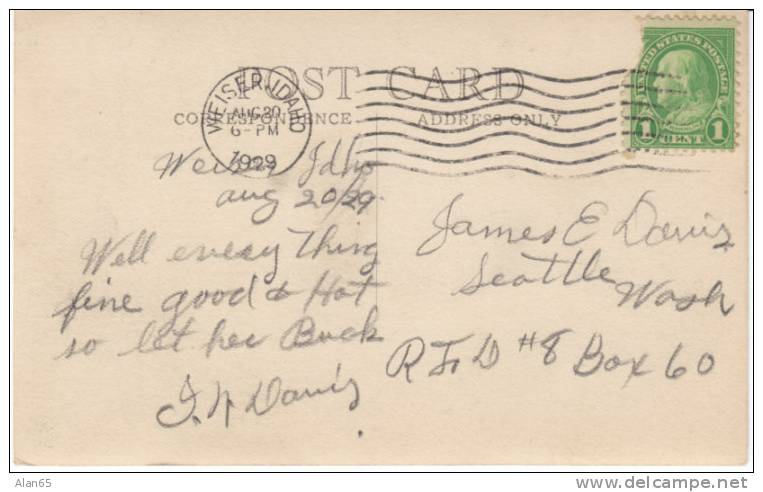 POST CARD
CORRESPONDENCE ADDRESS ONLY
WEISER, IDAHO
AUG 20
6-PM
1929
UNITED STATES POSTAGE
1 CENT 1
Weiser Idho
aug 20/29.
Well every Thing
fine good & Hot
so let her Buck
J. N Davis
James E Davis
Seattle
Wash
R F D #8 Box 60
Alan65
www.delcampe.net